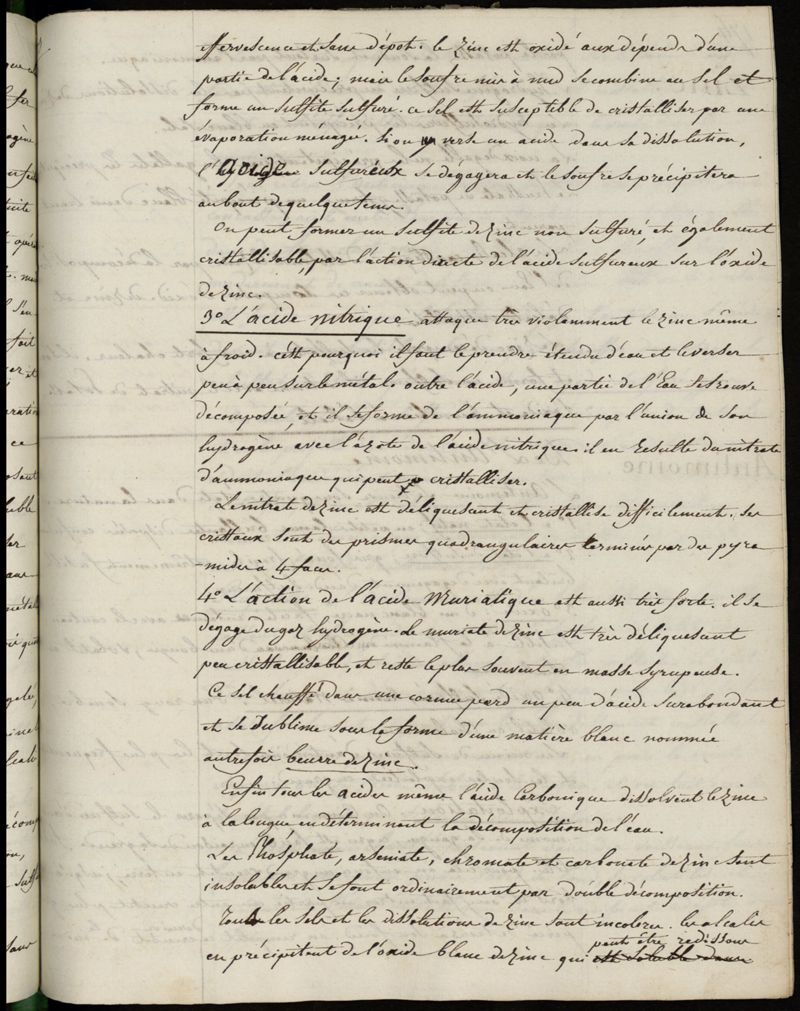 effervescence et sans dépot. le zinc est oxidé aux dépends d'une
partie de l'acide; mais le soufre mis à nud se combine au sel et
forme un sulfite sulfuré. ce sel est susceptible de cristalliser par une
évaporation ménagé. si on verse un acide dans sa dissolution,
l'acide sulfureux se dégagera et le soufre se précipitera
au bout de quelque tems.
On peut former un sulfite de zinc non sulfuré, et également
cristallisable, par l'action directe de l'acide sulfureux sur l'oxide
de zinc.
3° L'acide nitrique attaque très violemment le zinc même
à froid. c'est pourquoi il faut le prendre étendu d'eau et le verser
peu à peu sur le métal. outre l'acide, une partie de l'Eau se trouve
décomposée, et il se forme de l'ammoniaque par l'union de son
hydrogène avec l'azote de l'acide nitrique. il en resulte du nitrate
d'ammoniaque qui peut cristalliser.
Le nitrate de zinc est déliquescent et cristallise difficilement. ses
cristaux sont des prismes quadrangulaires terminés par des pyra
-mides à 4 faces.
4° L'action de l'acide Muriatique est aussi très forte. il se
dégage du gaz hydrogène. Le muriate de zinc est très déliquescent
peu cristallisable, et reste le plus souvent en masse syrupeuse.
Ce sel chauffé dans une cornue perd un peu d'acide surabondant
et se sublime sous la forme d'une matière blanc nommée
autrefois beurre de zinc.
Enfin tous les acides même l'acide Carbonique dissolvent le zinc
à la longue en déterminant la décomposition de l'eau.
Les Phosphate, arseniate, chromate et carbonate de zinc sont
insolubles et se font ordinairement par double décomposition.
Tous les sels et les dissolutions de zinc sont incolores. les alcalis
peut être redissous
en précipitent de l'oxide blanc de zinc qui est soluble dans